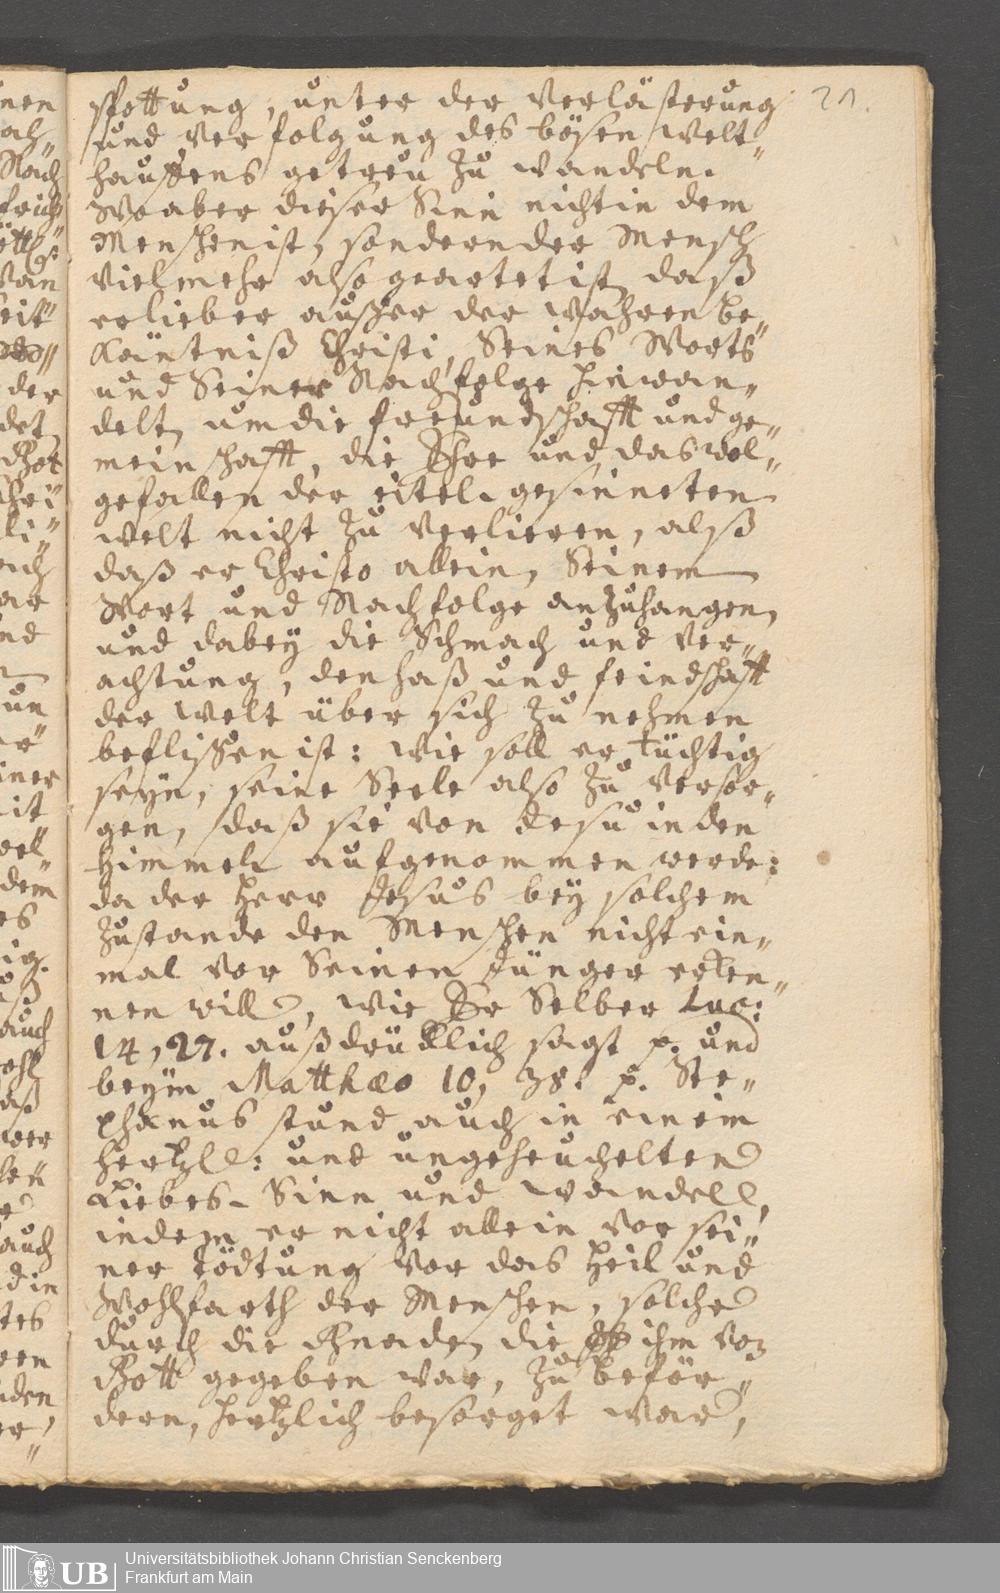 21.
spottung, unter der Verlästerung
und verfolgung des bösen welt-
hauffens getreu zu wandeln.
Wo aber dieser Sinn nicht in dem
Menschen ist, sondern der Mensch
vielmehr also geartet ist, daß
er lieber außer der wahren Be-
käntniß Christi, Seines Worts
und Seiner Nachfolge hinwan-
delt, um die freundschafft und ge-
meinschafft, die Ehre und das wol-
gefallen der eitel gesinneten
welt nicht zu verlieren, alß
daß er Christo allein, Seinem
Wort und Nachfolge anzuhangen,
und dabey die Schmach und ver-
achtung, den haß und feindschafft
der welt über sich zu nehmen
beflissen ist: wie soll er tüchtig
seyn, seine Seele also zu versor-
gen, daß sie von Jesu in den
Himmel aufgenommen werde:
da der Herr Jesus bey solchem
Zustande den Menschen nicht ein-
mal vor Seinen Jünger erken-
nen will, wie Er Selber Luc:
14, 27. außdrücklich sagt p. und
beym Matthæo 10, 38. p. Ste-
phanus stund auch in einem
hertzl: und ungeheuchelten
Liebes-Sinn und wandell,
indem er nicht allein vor sei-
ner tödtung vor das Heil und
Wohlfarth der Menschen, solche
durch die Gnade, die ihm von
Gott gegeben war, zu beför-
dern, hertzlich besorget war,
Universitätsbibliothek Johann Christian Senckenberg
Frankfurt am Main
UB